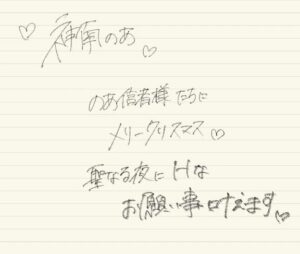 ♡神南のあ♡
のあ信者様たちに
メリークリスマス♡
聖なる夜にHな
お願い事叶えます♡